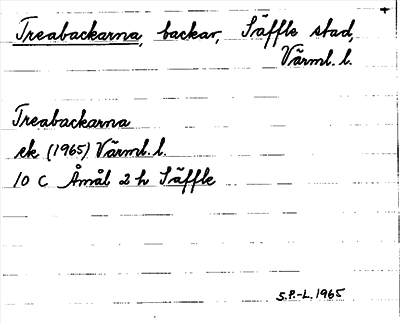 Treabackarna, backar, Säffle stad,
Värml. l.
Treabackarna
ek (1965) Värml. l.
10 C Åmål 2 h Säffle
S.P.-L. 1965